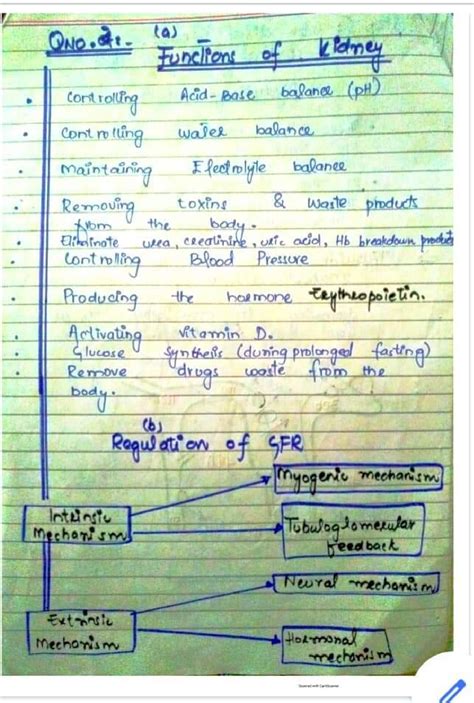 QNO.2:- (a)
Functions of kidney
• Controlling Acid-Base balance (pH)
• Controlling water balance
• Maintaining Electrolyte balance
• Removing toxins & waste products
from the body.
• Eliminate urea, creatinine, uric acid, Hb breakdown products
• Controlling Blood Pressure
• Producing the hormone Erythropoietin.
• Activating Vitamin D.
• Glucose Synthesis (during prolonged fasting)
• Remove drugs waste from the
body.
(b)
Regulation of GFR
Intrinsic
Mechanism
Myogenic mechanism
Tubuloglomerular
feedback
Extrinsic
Mechanism
Neural mechanism
Hormonal
mechanism
Scanned with CamScanner